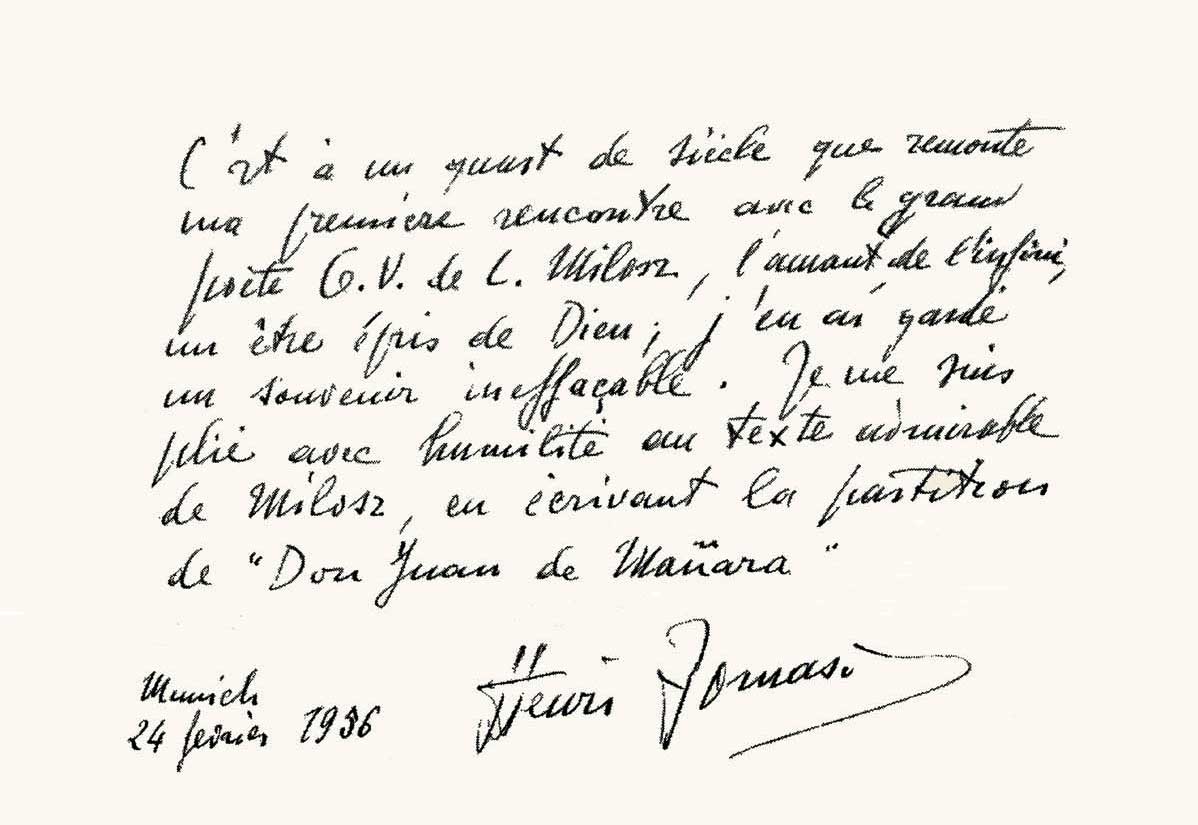 C'est à un quart de siècle que remonte
ma première rencontre avec le grand
poète O.V. de L. Milosz, l'amant de l'infini,
un être épris de Dieu ; j'en ai gardé
un souvenir ineffaçable. Je me suis
plié avec humilité au texte admirable
de Milosz, en écrivant la partition
de "Don Juan de Mañara"
Henri Tomasi
Munich
24 février 1956